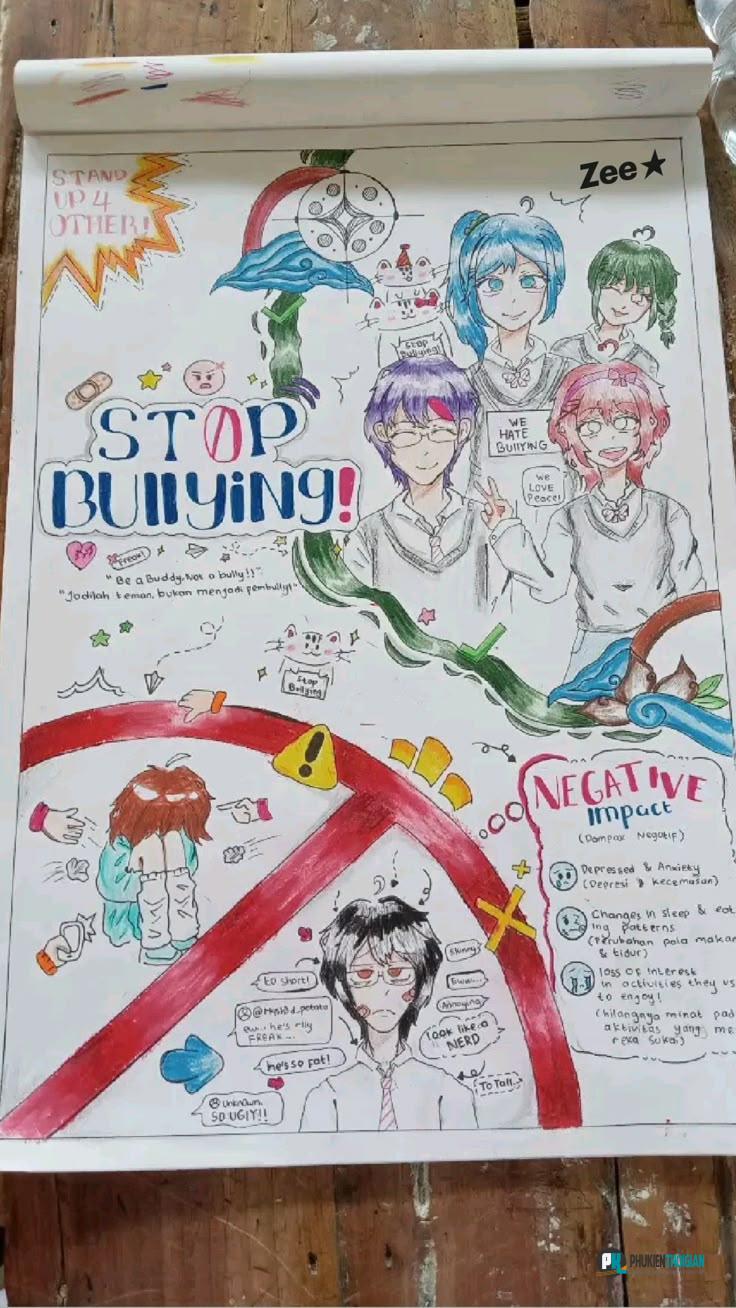 Zee★
STAND
UP 4
OTHER!
STOP
Bullying!
WE
HATE
BULLYING
We
LOVE
Peace!
STOP
BULLYING!
STOP
BULLYING!
Freak!
"Be a Buddy, Not a bully!!"
"Jadilah teman, bukan menjadi pembully!"
Stop
Bullying
NEGATIVE
Impact
(Dampak Negatif)
Depressed & Anxiety
(Depresi & kecemasan)
Changes in sleep & eat
ing patterns
(Perubahan pola makan
& tidur)
loss of interest
in activities they us
to enjoy!
(hilangnya minat pad
aktivitas yang me
reka sukai)
to short!
ew.. he's rlly
FREAK...
he's so fat!
Unknown.
SO UGLY!!
Skinny!
Eww...
Annoying
look like a
NERD
To Tall..
PHUKIENTHOIGIAN